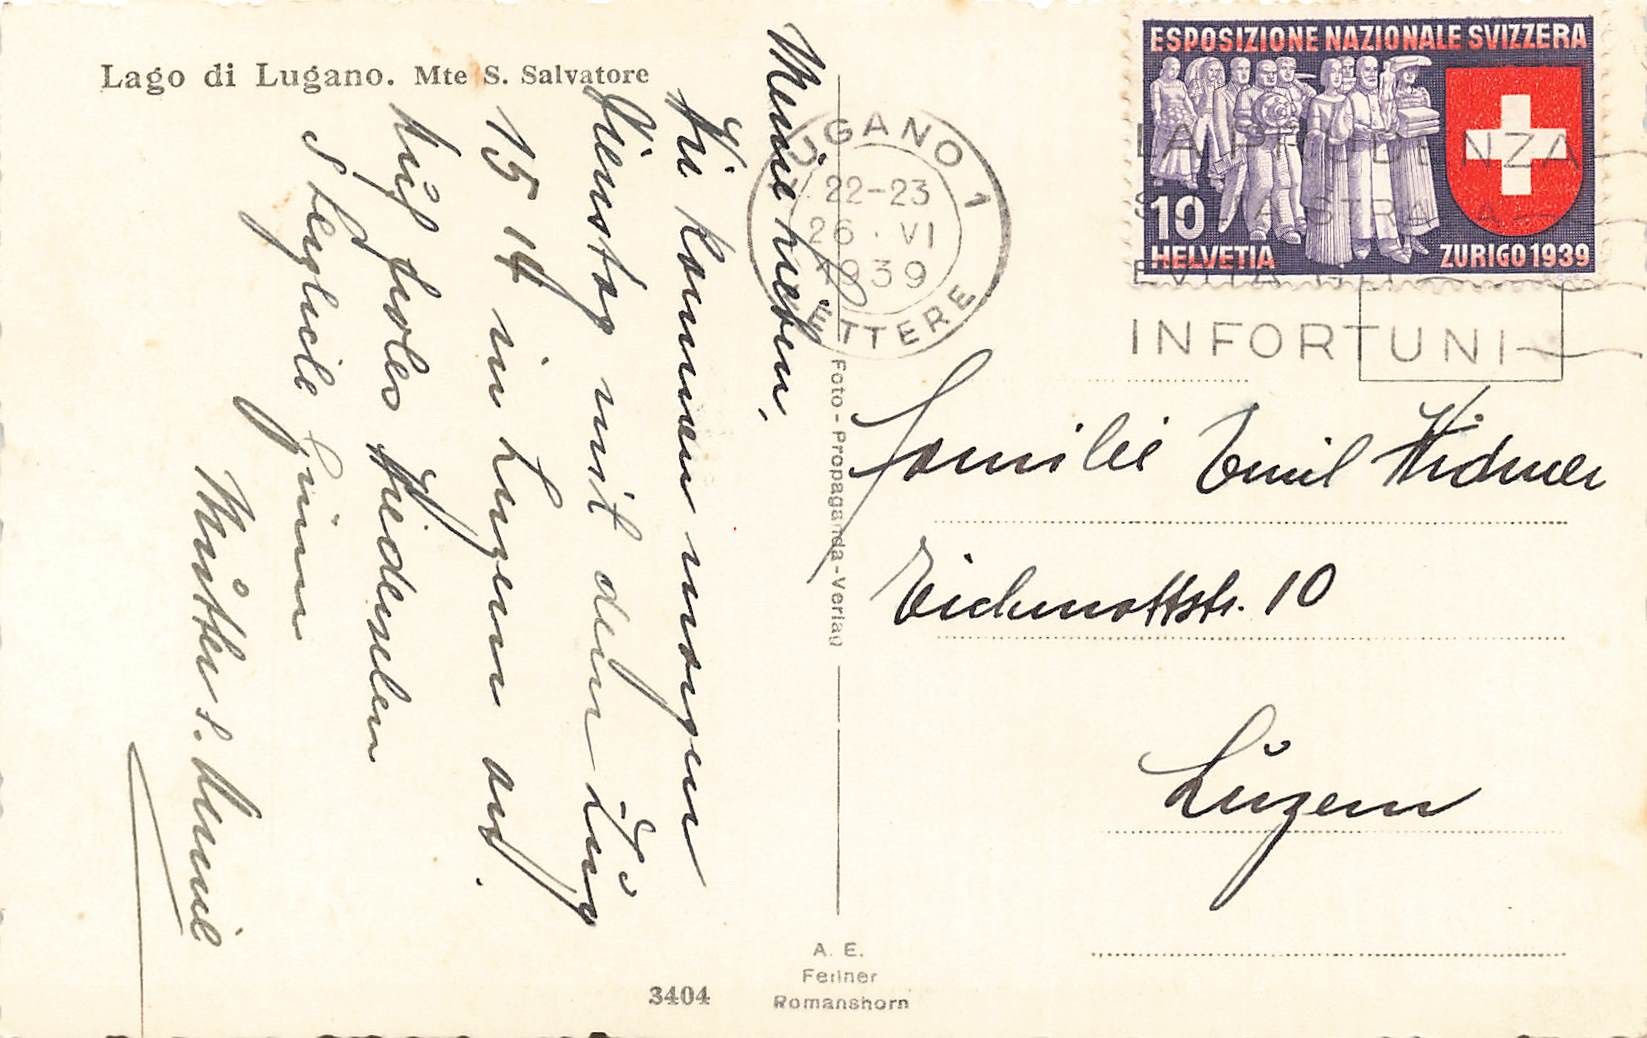 Lago di Lugano. Mte S. Salvatore
Meine Lieben,
Wir kommen morgen
Dienstag mit dem Zug
15 14 in Luzern an.
Auf frohes Wiedersehen
Herzliche Grüsse
Mutter &
ESPOSIZIONE NAZIONALE SVIZZERA
10
HELVETIA
ZURIGO 1939
LUGANO 1
22-23
26 . VI
1939
LETTERE
LA PRUDENZA
INFORTUNI
Familie Emil Widmer
Eichmattstr. 10
Luzern
Foto - Propaganda - Verlag
A. E.
Fellner
Romanshorn
3404